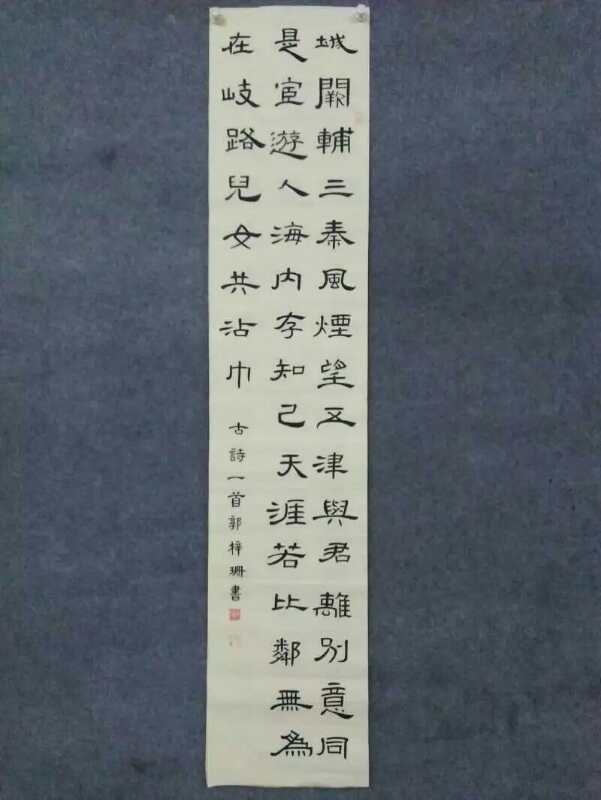 城闕輔三秦風煙望五津與君離別意同
是宦遊人海内存知己天涯若比鄰無為
在岐路兒女共沾巾
古詩一首郭梓珊書